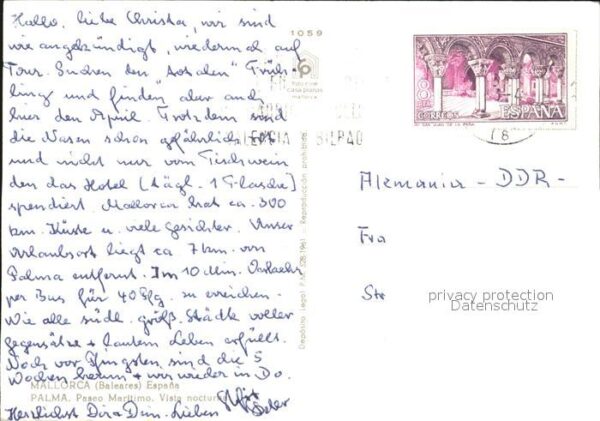 Hallo, liebe Christa, wir sind
wie angekündigt, wiederum auf
Tour. Suchen den "totalen" Früh-
ling und finden aber auch
hier den April. Trotzdem sind
die Nasen schon gefährlich rot
und nicht nur vom Tischwein
den das Hotel (tägl. 1 Flasche)
spendiert. Mallorca hat ca. 300
km. Küste u. viele Gesichter. Unser
Urlaubsort liegt ca 7 km. von
Palma entfernt. Im 10 Min. Verkehr
per Bus für 40 Pfg. zu erreichen.
Wie alle südl. größ. Städte voller
gegensätze + lautem Leben erfüllt.
Noch vor Pfingsten sind die 5
Wochen herum + wir wieder in Do.
Herzlichst Dir + Dein. Lieben
MALLORCA (Baleares) España
PALMA. Paseo Marítimo. Vista nocturna
1059
casa planas
mallorca
Depósito Legal P.M. 328-1961 - Reproducción prohibida
BILBAO
8 PTA
CORREOS
ESPAÑA
SAN JUAN DE LA PEÑA
Alemania - DDR -
Fra
Str
privacy protection
Datenschutz